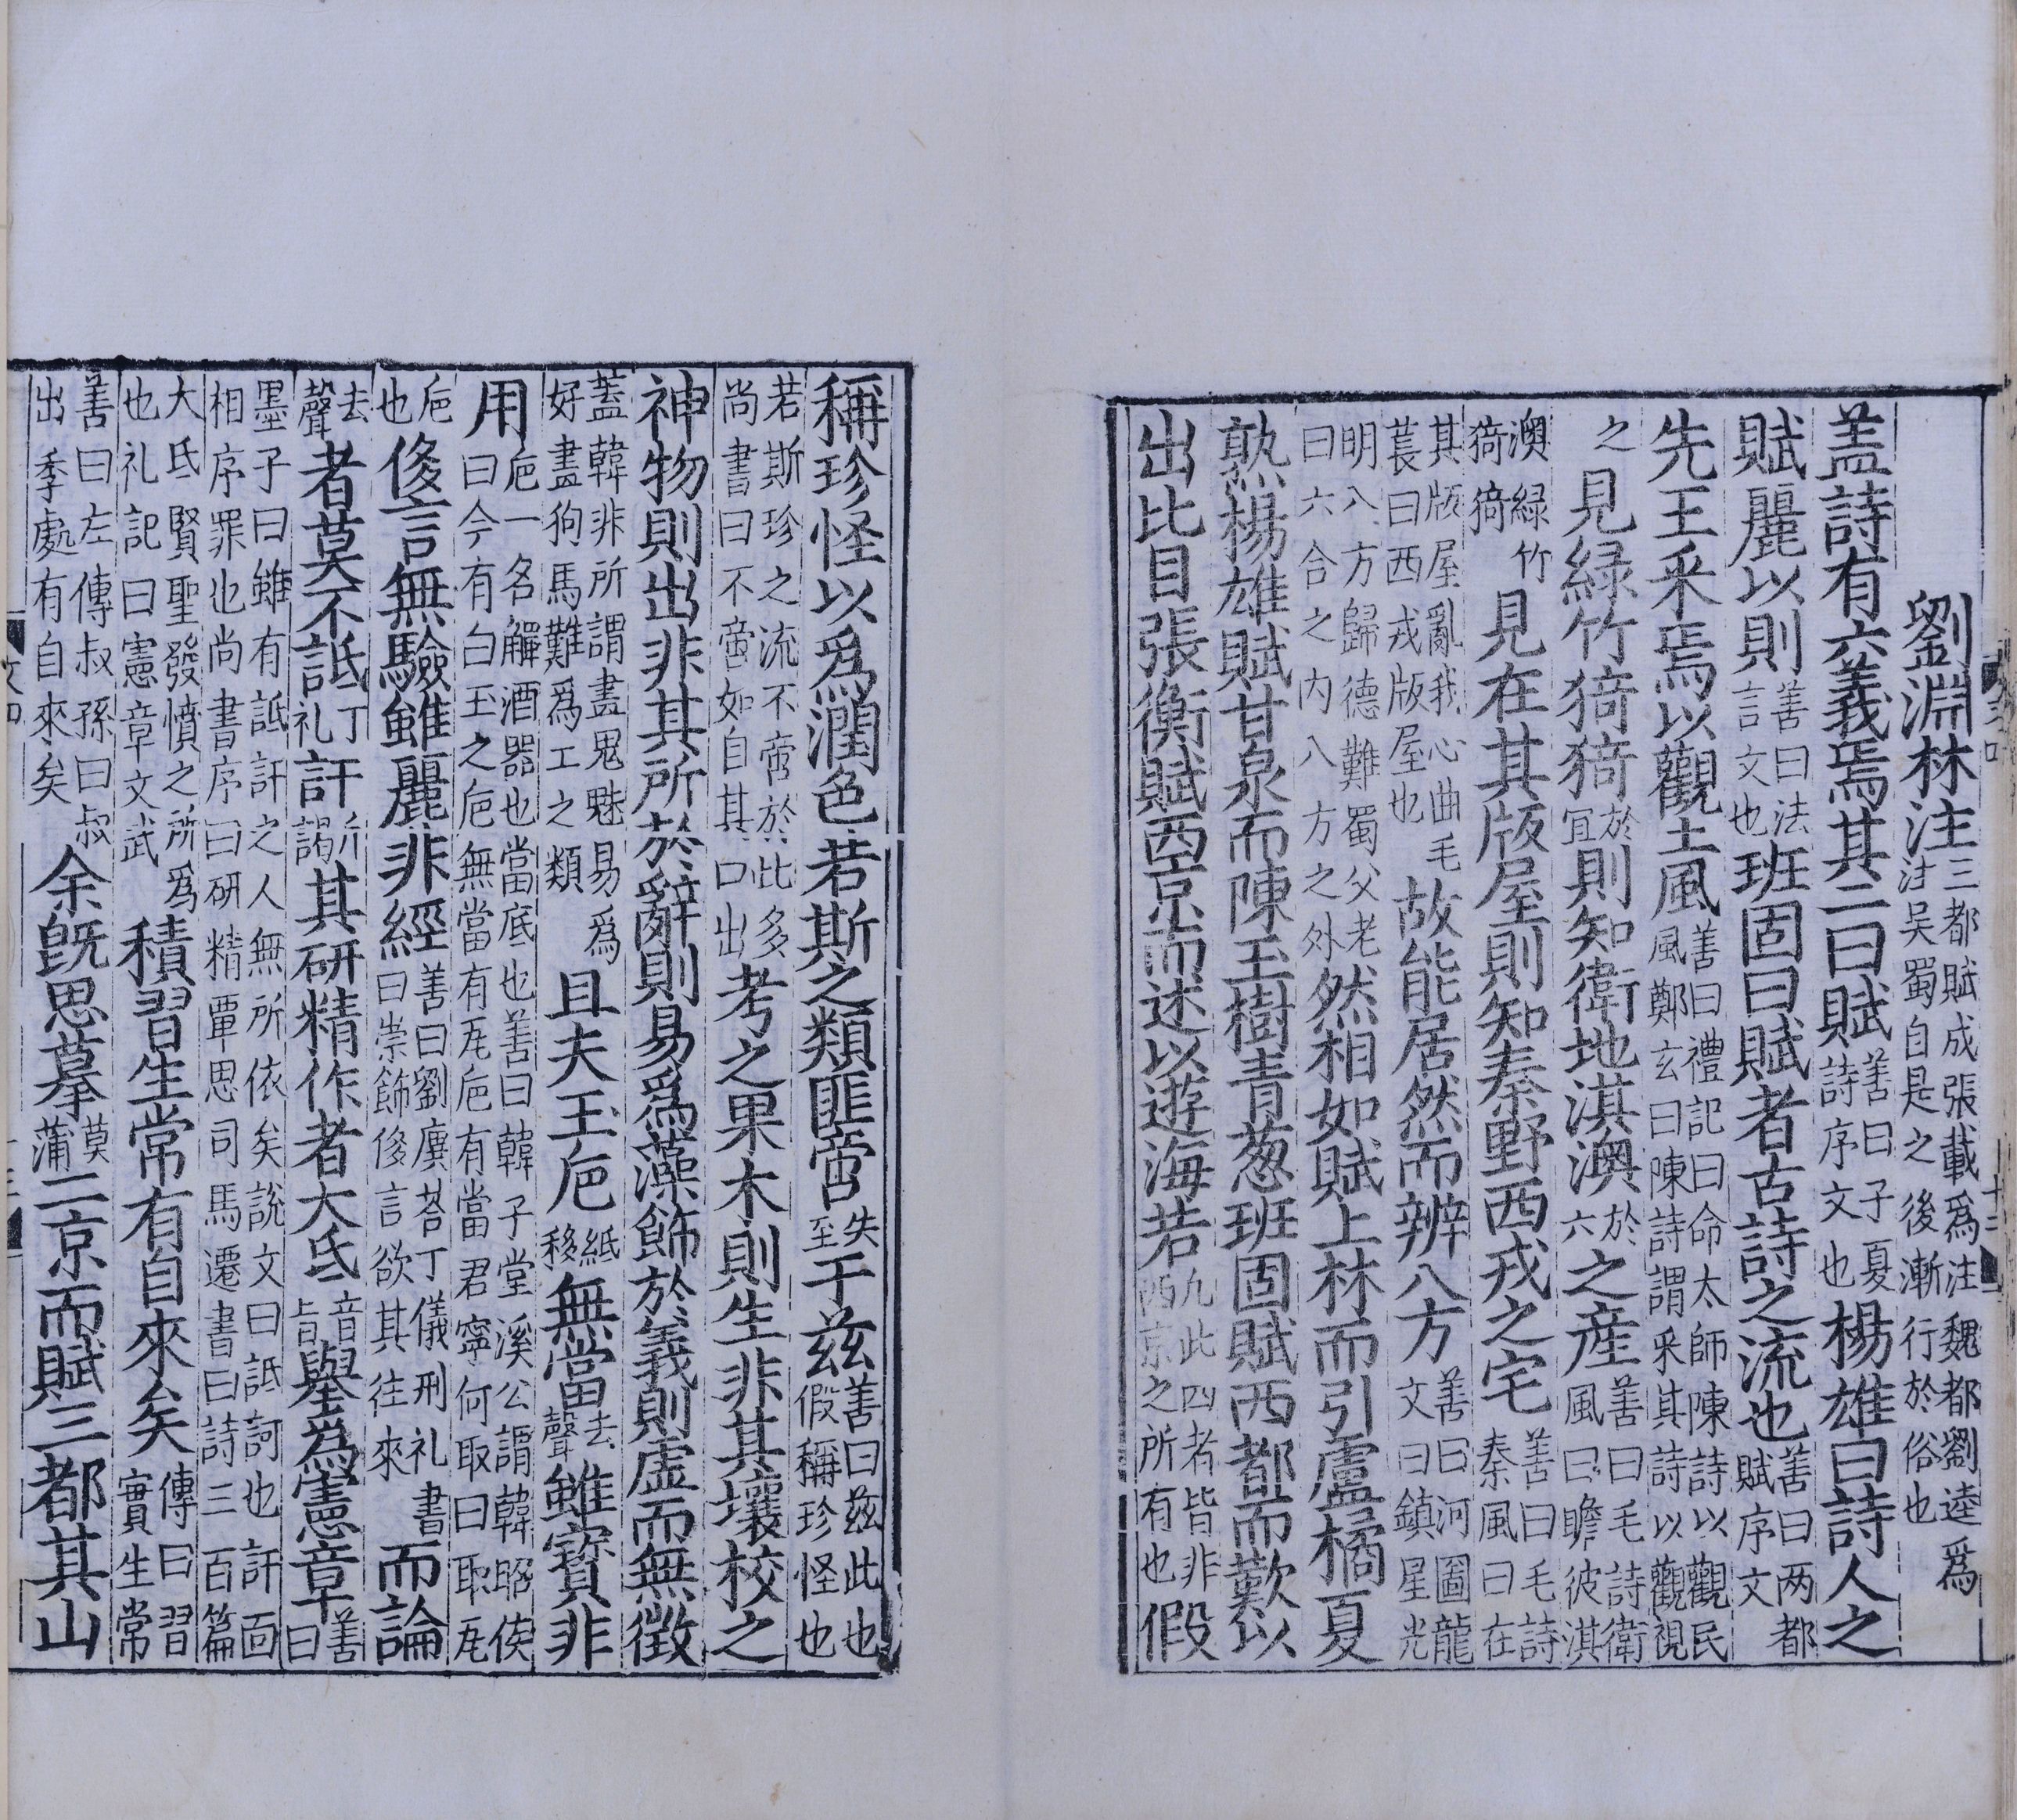 劉淵林注三都賦成張載爲注魏都劉逵爲注吴蜀自是之後漸行於俗也
蓋詩有六義焉其二曰賦善曰子夏詩序文也楊雄曰詩人之
賦麗以則善曰法言文也班固曰賦者古詩之流也善曰两都賦序文
先王采焉以觀土風善曰禮記曰命太師陳詩以觀民風鄭玄曰陳詩謂采其詩以觀視
之見緑竹猗猗於宜則知衛地淇澳於六之産善曰毛詩衛風曰瞻彼淇
澳緑竹猗猗見在其版屋則知秦野西戎之宅善曰毛詩秦風曰在
其版屋亂我心曲毛萇曰西戎版屋也故能居然而辨八方善曰河圖龍文曰鎮星光
明八方歸德難蜀父老曰六合之内八方之外然相如賦上林而引盧橘夏
熟楊雄賦甘泉而陳玉樹青葱班固賦西都而歎以
出比目張衡賦西京而述以遊海若凡此四者皆非西京之所有也假
稱珍怪以爲潤色若斯之類匪啻失至于兹善曰兹此也假稱珍怪也
若斯珍之流不啻於比多尚書曰不啻如自其口出考之果木則生非其壤校之
神物則出非其所於辭則易爲藻飾於義則虛而無徵
蓋韓非所謂畫鬼魅易爲好畫狗馬難爲工之類且夫玉巵紙移無當去聲雖寶非
用巵一名觶酒器也當底也善曰韓子堂溪公謂韓昭侯曰今有白玉之巵無當有瓦巵有當君寧何取曰取瓦
巵也侈言無驗雖麗非經善曰劉廙荅丁儀刑礼書曰崇飾侈言欲其往來而論
去聲者莫不詆丁礼訐居謁其研精作者大氐音旨舉爲憲章善曰
墨子曰雖有詆訐之人無所依矣說文曰詆訶也訐面相序罪也尚書序曰研精覃思司馬遷書曰詩三百篇
大氐賢聖發憤之所爲也礼記曰憲章文武積習生常有自來矣傳曰習實生常
善曰左傳叔孫曰叔出季處有自來矣余旣思摹莫蒲二京而賦三都其山